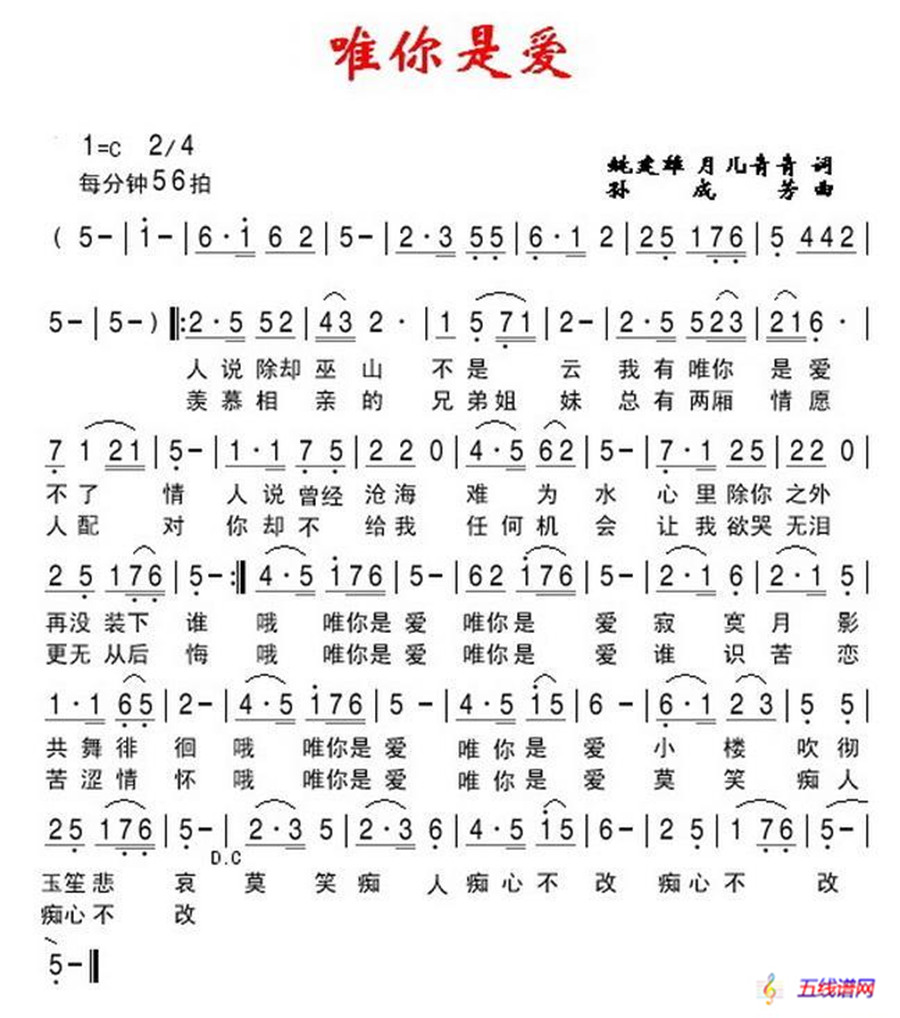 唯你是爱
1=C 2/4
每分钟56拍
姚建雄 月儿青青 词
孙成芳 曲
( 5 - | i - | 6 · i 6 2 | 5 - | 2 · 3 5 5 | 6 · 1 2 | 2 5 1 7 6 | 5 4 4 2 |
5 - | 5 - ) ‖: 2 · 5 5 2 | 4 3 2 · | 1 5 7 1 | 2 - | 2 · 5 5 2 3 | 2 1 6 · |
人说除却巫山 不是 云 我有唯你 是爱
羡慕相亲的 兄弟姐 妹 总有两厢 情愿
7 1 2 1 | 5 - | 1 · 1 7 5 | 2 2 0 | 4 · 5 6 2 | 5 - | 7 · 1 2 5 | 2 2 0 |
不了 情 人说曾经 沧海 难 为 水 心里除你之外
人配 对 你却不 给我 任何机 会 让我欲哭无泪
2 5 1 7 6 | 5 - :‖ 4 · 5 i 7 6 | 5 - | 6 2 i 7 6 | 5 - | 2 · 1 6 | 2 · 1 5 |
再没装下 谁 哦 唯你是 爱 唯你是 爱 寂 寞 月 影
更无从后 悔 哦 唯你是 爱 唯你是 爱 谁 识 苦 恋
1 · 1 6 5 | 2 - | 4 · 5 i 7 6 | 5 - | 4 · 5 i 5 | 6 - | 6 · 1 2 3 | 5 5 |
共舞徘 徊 哦 唯你是 爱 唯你是 爱 小 楼 吹彻
苦涩情 怀 哦 唯你是 爱 唯你是 爱 莫 笑 痴人
2 5 1 7 6 | 5 - | 2 · 3 5 | 2 · 3 6 | 4 · 5 i 5 | 6 - | 2 5 | 1 7 6 | 5 - |
D.C
玉笙悲 哀 莫 笑 痴 人 痴心不 改 痴心不 改
痴心不 改
5 - ‖
五线谱网